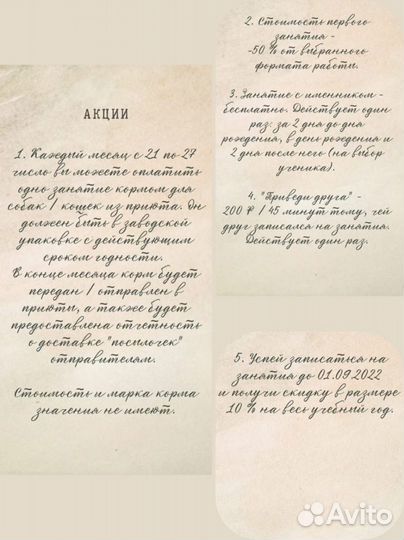 АКЦИИ
1. Каждый месяц с 21 по 27
число вы можете оплатить
одно занятие кормом для
собак / кошек из приюта. Он
должен быть в заводской
упаковке с действующим
сроком годности.
В конце месяца корм будет
передан / отправлен в
приюты, а также будет
предоставлена отчетность
о доставке "посылочек"
отправителям.
Стоимость и марка корма
значения не имеют.
2. Стоимость первого
занятия -
-50 % от выбранного
формата работы.
3. Занятие с именинником -
бесплатно. Действует один
раз: за 2 дня до дня
рождения, в день рождения и
2 дня после него (на выбор
ученика).
4. "Приведи друга" -
200 ₽ / 45 минут тому, чей
друг записался на занятия.
Действует один раз.
5. Успей записаться на
занятия до 01.09.2022
и получи скидку в размере
10 % на весь учебный год.
Avito